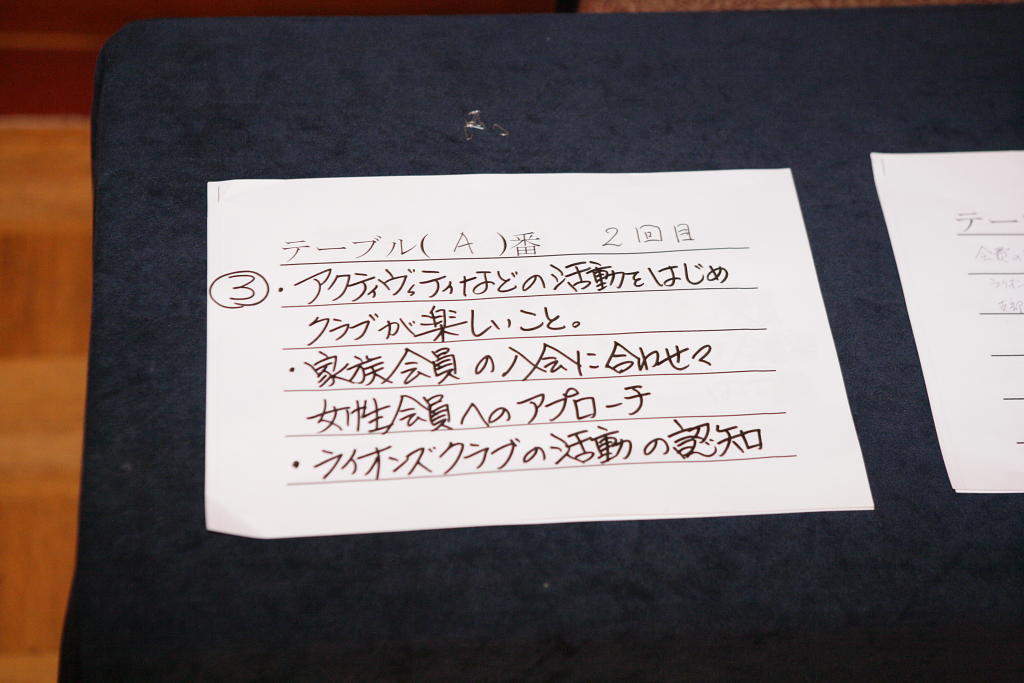 テーブル( A )番 2回目
③・アクティヴィティなどの活動をはじめ
クラブが楽しいこと。
・家族会員の入会に合わせ々
女性会員へのアプローチ
・ライオンズクラブの活動の認知
テー
会費の
ライオン
支部